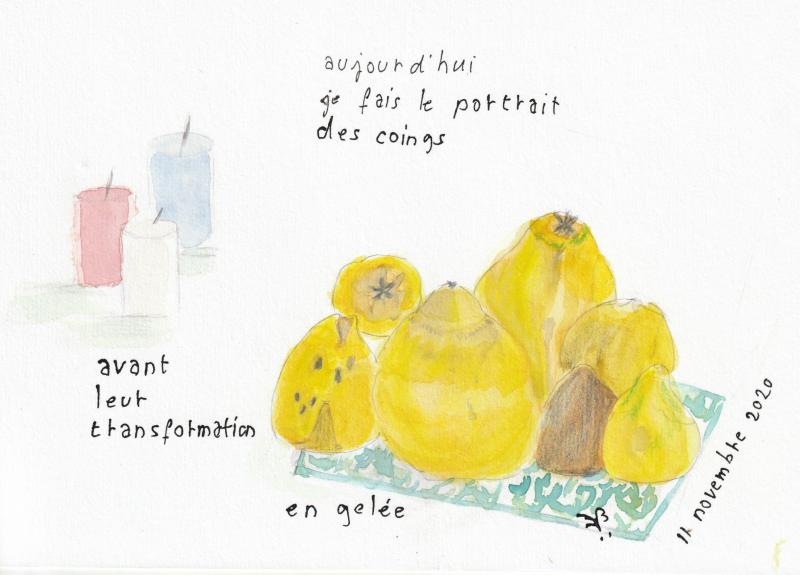 aujourd'hui
je fais le portrait
des coings
avant
leur
transformation
en gelée
11 novembre 2020